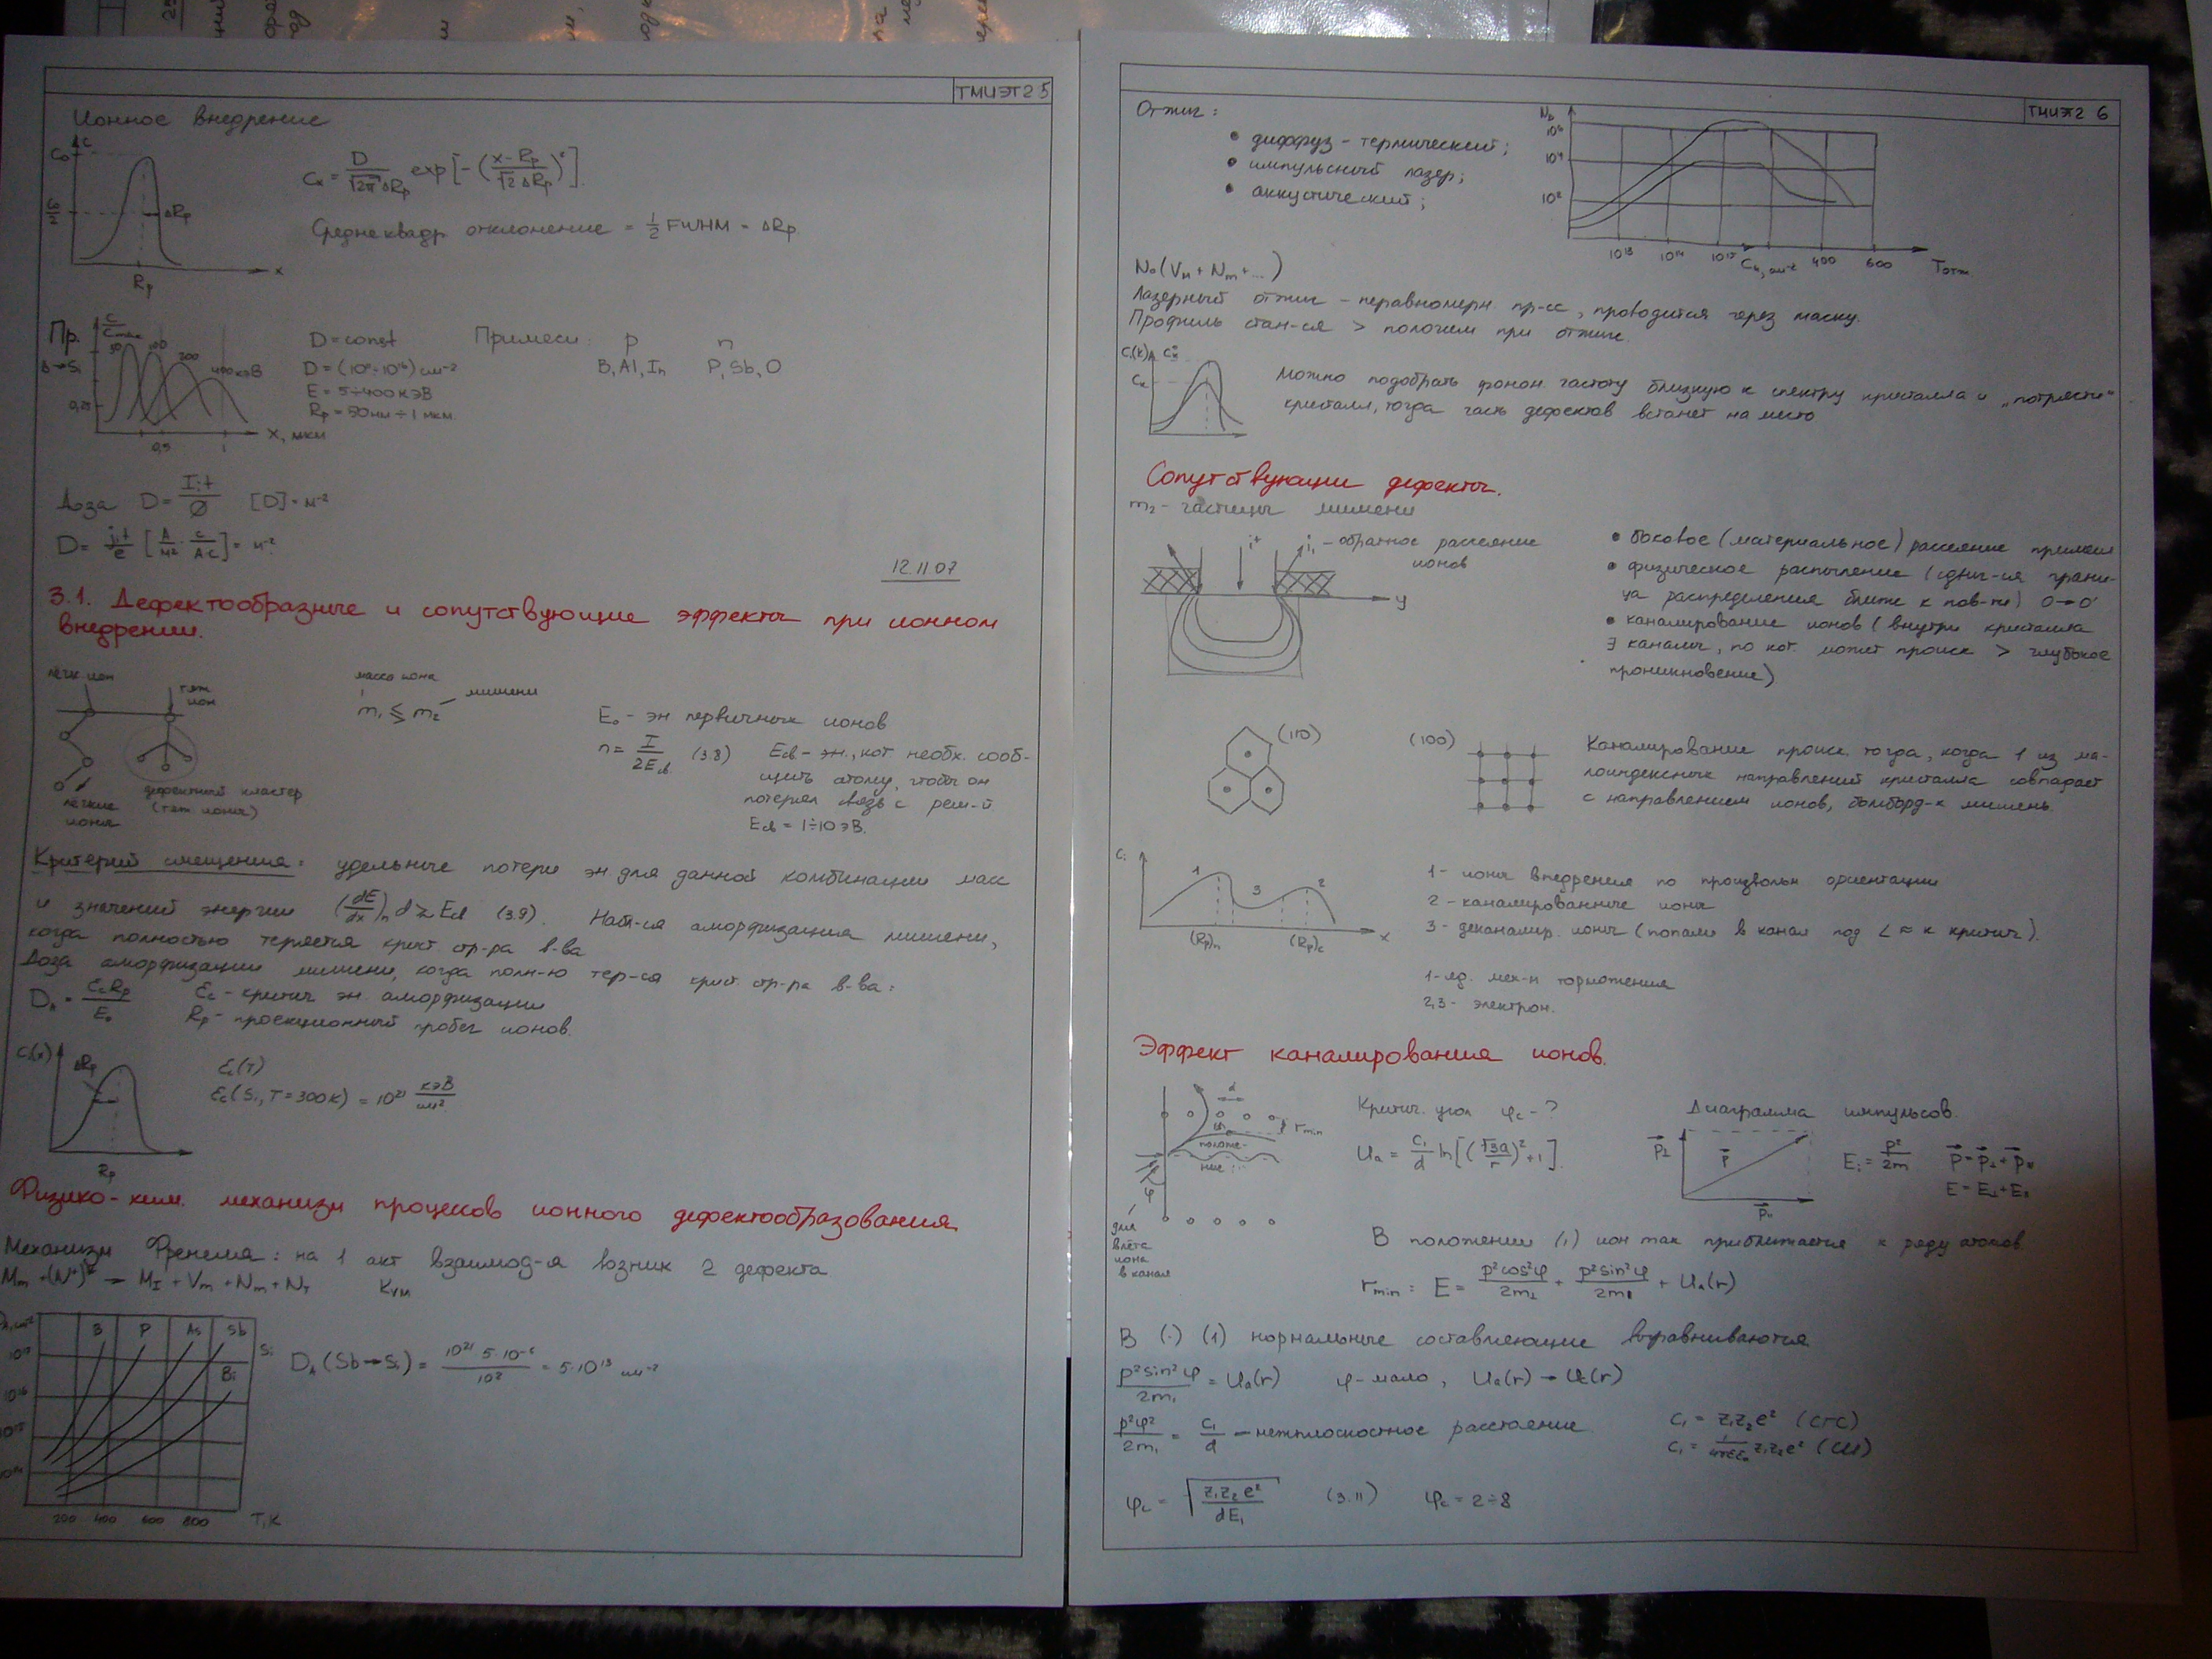 ТМИЭТ2 5
Ионное внедрение
C
C₀
C₀/2
ΔRp
Rp
x
Cx = D/(√2π ΔRp) exp[-((x-Rp)/(√2 ΔRp))²].
Среднеквадр отклонение = 1/2 FWHM = ΔRp.
Пр.
B→Si
C/Cmax
50 100 200 400 кэВ
0,25
0,5 1 x, мкм
D = const
E = 5÷400 кЭВ
Rp = 50 нм ÷ 1 мкм.
Примеси: p n
B, Al, In P, Sb, O
Доза D = I·t/Ø [D] = м⁻²
D = j·t/e [А/м² · с/А·с] = м⁻².
12.11.07
3.1. Дефектообразные и сопутствующие эффекты при ионном
внедрении.
лёгк. ион
тяж. ион
лёгкие ионы
дефектный кластер
(тяж. ионы)
масса иона
мишени
m₁ ≶ m₂
E₀ - эн первичных ионов
n = I/2Ed (3.8) Ed - эн., кот необх. сооб-
щить атому, чтобы он
потерял связь с реш-й
Ed = 1÷10 эВ.
Критерий смещения: удельные потери эн. для данной комбинации масс
и значений энергии (dE/dx)n d ≥ Ed (3.9). аморфизация мишени,
когда полностью теряется крист стр-ра в-ва
Доза аморфизации мишени, когда полн-ю тер-ся крист. стр-ра в-ва:
DA = εcRp/E₀ εc - критич эн. аморфизации
Rp - проекционный пробег ионов.
C(x)
ΔRp
Rp
εc(T)
εc(Si, T=300K) = 10²¹ кэВ/см²
Физико-хим. механизм процессов ионного дефектообразования
Механизм Френеля: на 1 акт взаимод-я возник 2 дефекта
Mm + (N⁺)* → MI + Vm + Nm + NI KVM
B P As Sb Si
Bi
10¹⁷
10¹⁶
10¹⁵
10¹⁴
200 400 600 800 T, K
DA (Sb→Si) = 10²¹ 5·10⁻⁶/10² = 5·10¹³ см⁻²
ТМИЭТ2 6
Отжиг:
• диффуз-термический;
• импульсный лазер;
• аккустический;
10⁶
10⁴
10²
10¹³ 10¹⁴ 10¹⁵ Cи, см⁻² 400 600 Tотж
N₀(Vм + Nm + ...)
Лазерный отжиг - неравномерн. пр-сс, проводится через маску.
Профиль стан-ся > пологим при отжиге.
Cx
Можно подобрать фонон. частоту близкую к спектру кристалла и „потрясти"
кристалл, тогда часть дефектов встанет на место
Сопутствующие дефекты.
m₂ - частицы мишени
i⁺
i₁ - обратное рассеяние
ионов
y
• боковое (материальное) рассеяние примеси
• физическое распыление (сдвиг-ся грани-
ца распределения ближе к пов-ти) 0→0'
• каналирование ионов (внутри кристалла
∃ каналы, по кот. может происх > глубокое
проникновение)
(110)
(100)
Каналирование происх. тогда, когда 1 из ма-
лоиндексных направлений кристалла совпадает
с направлением ионов, бомбард-х мишень.
Ci
1 3 2
(Rp)n (Rp)c x
1 - ионы внедрения по произвольн ориентации
2 - каналированные ионы
3 - деканалир. ионы (попали в канал под ∠ ≈ к критич).
1 - яд. мех-м торможения
2,3 - электрон.
Эффект каналирования ионов.
d
rmin
φ
для
влёта
иона
в канал
Критич. угол φc - ?
Ua = C₁/d ln[(√3a/r)² + 1].
Диаграмма импульсов.
p⊥ p p∥
Ei = p²/2m p = p⊥ + p∥
E = E⊥ + E∥
В положении (1) ион так приближается к ряду атомов
rmin: E = p²cos²φ/2m₁ + p²sin²φ/2m₁ + Ua(r)
В (·) (1) нормальные составляющие выравниваются
p²sin²φ/2m₁ = Ua(r) φ - мало, Ua(r) → Uc(r)
p²φ²/2m₁ = C₁/d - межплоскостное расстояние
C₁ = z₁z₂e² (СГС)
C₁ = 1/4πεε₀ z₁z₂e² (СИ)
φc = √(z₁z₂e²/dE₁) (3.11) φc = 2÷8